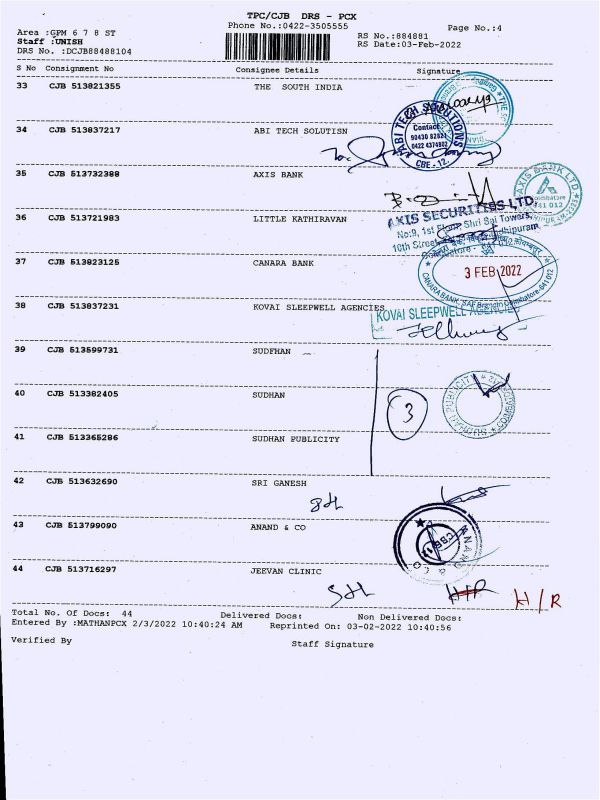 TPC/CJB DRS - PCX
Phone No.:0422-3505555
Page No.:4
Area :GPM 6 7 8 ST
Staff :UNISH
DRS No. :DCJB88488104
RS No.:884881
RS Date:03-Feb-2022
S No Consignment No Consignee Details Signature
33 CJB 513821355 THE SOUTH INDIA
34 CJB 513837217 ABI TECH SOLUTISN
ABI TECH SOLUTIONS
Contact
0422 4374802
CBE - 12
35 CJB 513732388 AXIS BANK
AXIS BANK LTD
Coimbatore
641 012
36 CJB 513721983 LITTLE KATHIRAVAN
AXIS SECURITIES LTD
No:9, 1st Floor, Shri Sai Towers,
10th Street,
37 CJB 513823125 CANARA BANK
3 FEB 2022
CANARA BANK
38 CJB 513837231 KOVAI SLEEPWELL AGENCIES
KOVAI SLEEPWELL AGENCIES
39 CJB 513599731 SUDFHAN
40 CJB 513382405 SUDHAN
3
SUDHAN PUBLICITY
41 CJB 513365286 SUDHAN PUBLICITY
42 CJB 513632690 SRI GANESH
43 CJB 513799090 ANAND & CO
ANAND & CO
CBE-12
44 CJB 513716297 JEEVAN CLINIC
H/R
Total No. Of Docs: 44 Delivered Docs: Non Delivered Docs:
Entered By :MATHANPCX 2/3/2022 10:40:24 AM Reprinted On: 03-02-2022 10:40:56
Verified By Staff Signature